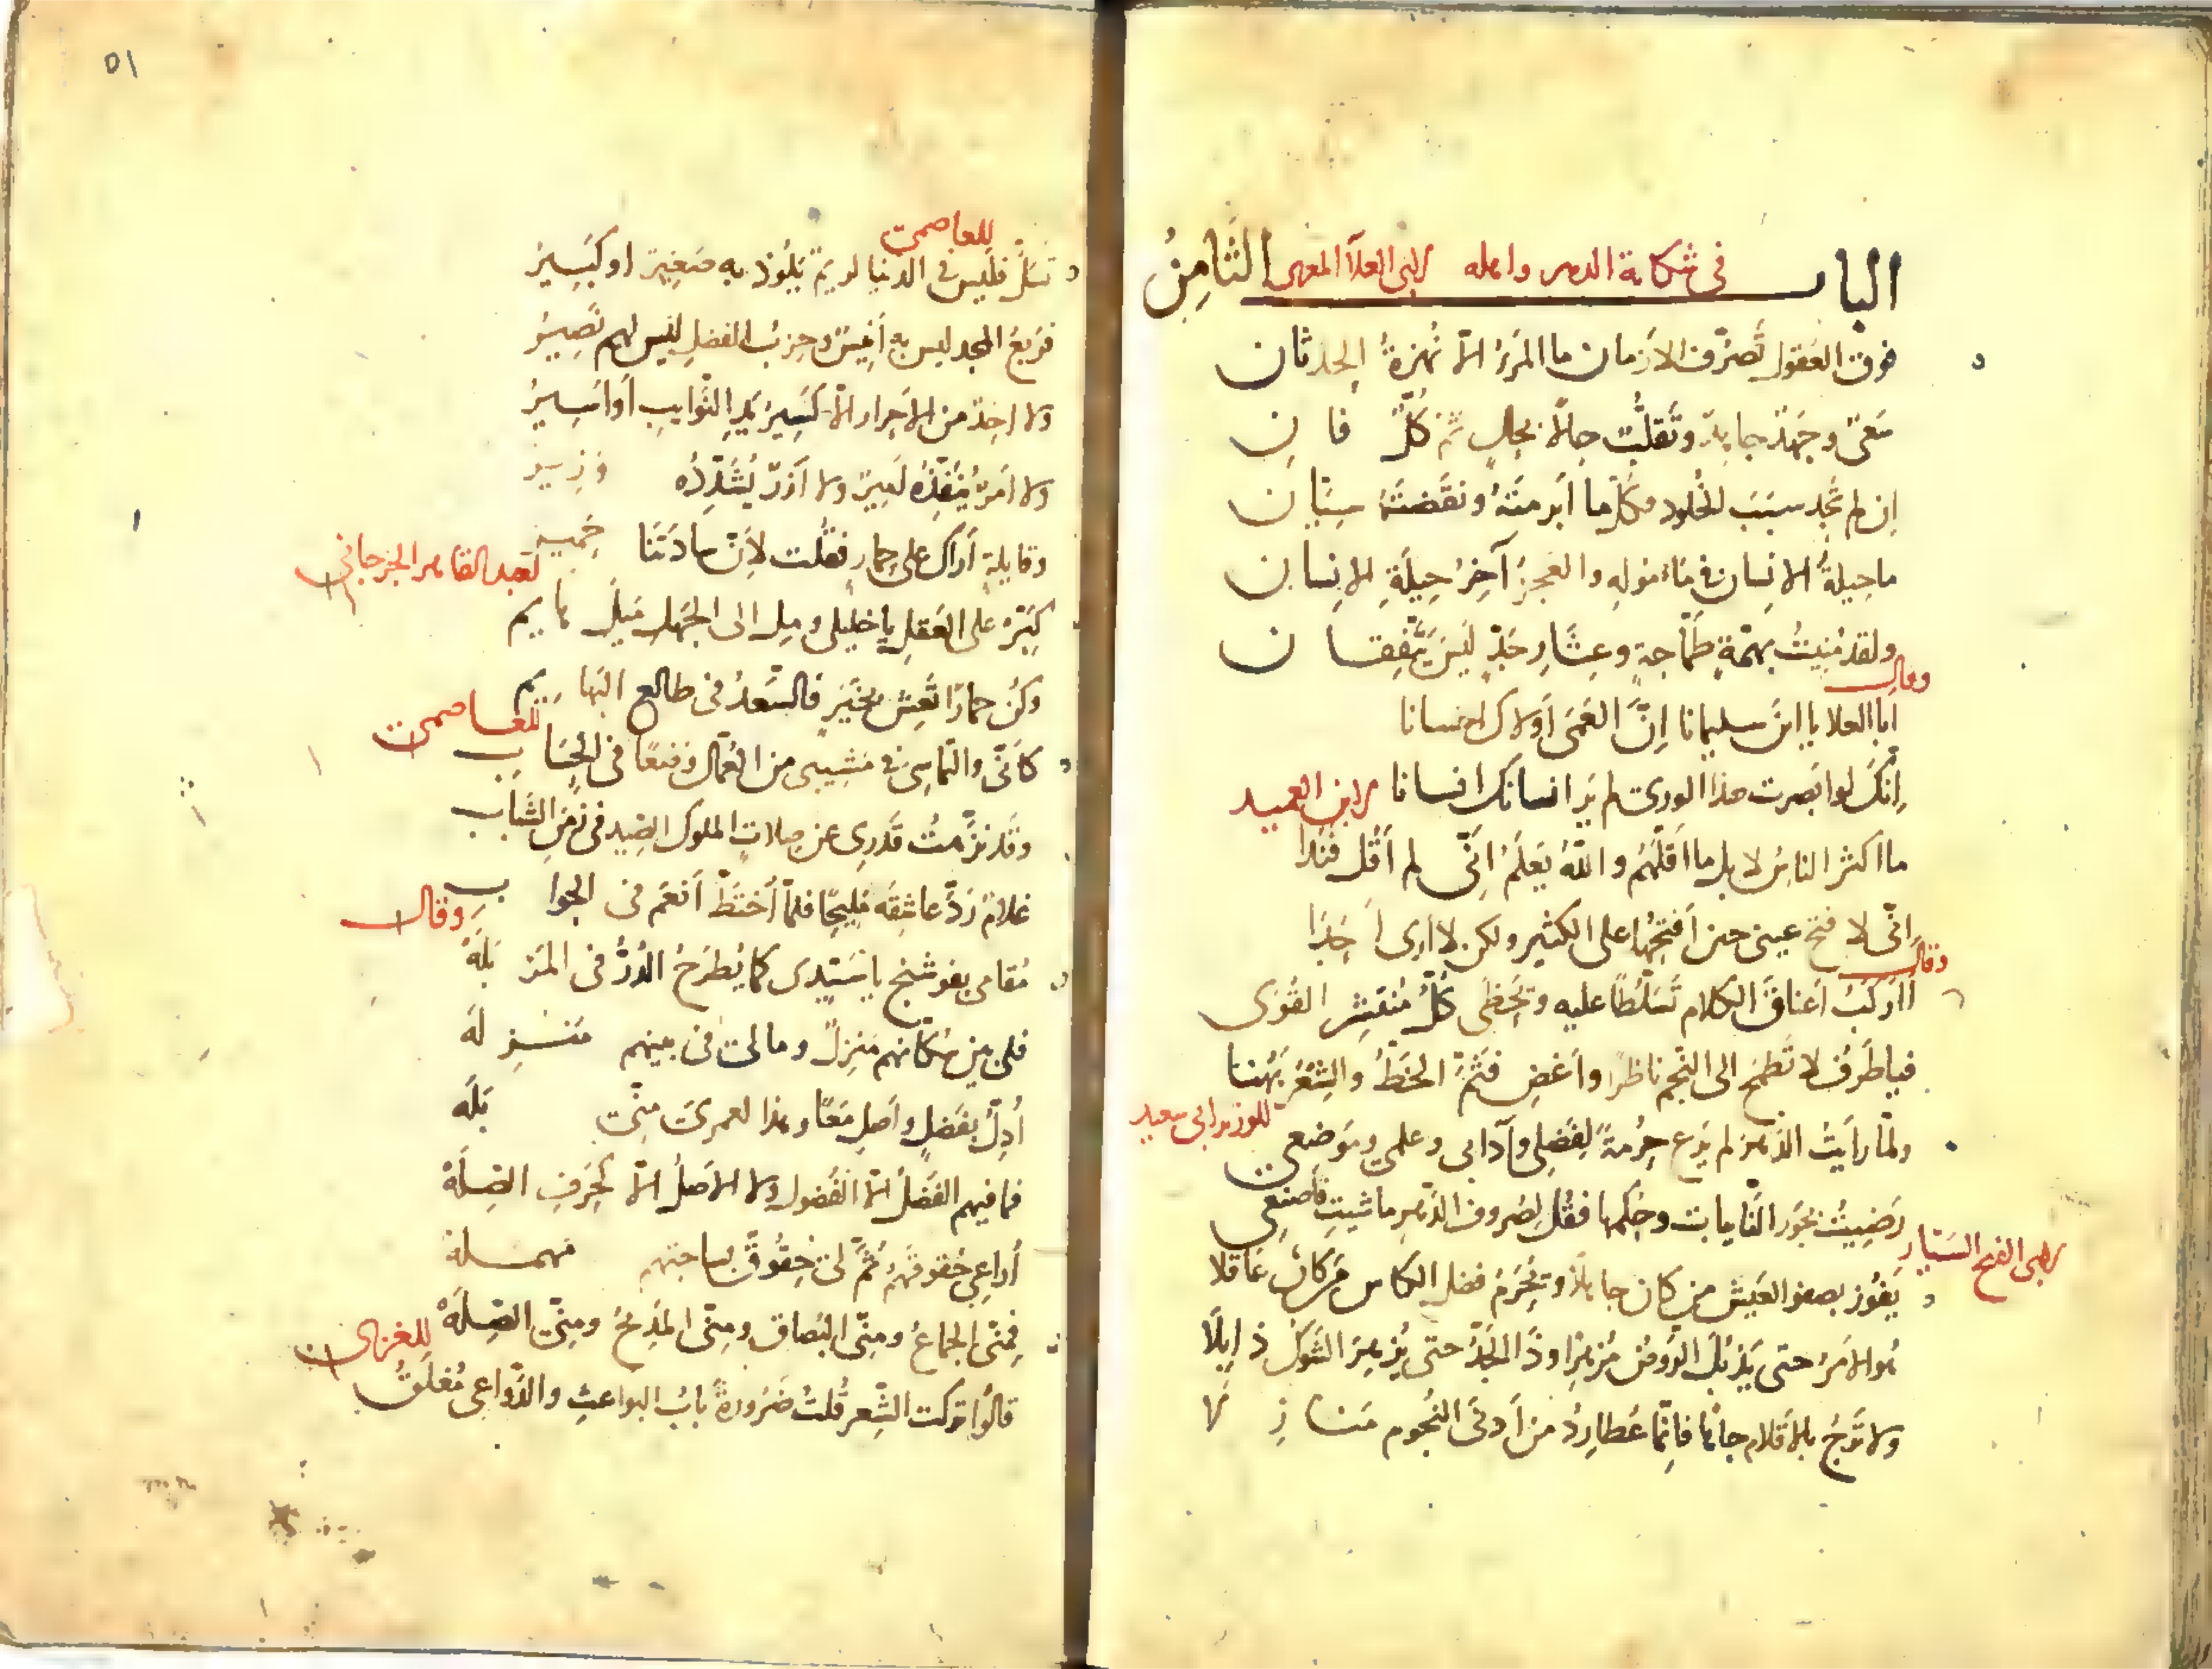 الباب الثَّامِنُ في شكاية الدهر واهله لابى العلآ المعرى
فوق العُقول تَصرّف الازمان ما المَرءُ الّا نُهزةُ الحدثان
إن لم تجد سبَبَ الخُلود فكلّ ما أبرمتَهُ ونقَضتَهُ سِيّان
ما حِيلةُ الانسان في والعَجزُ آخِرُ حِيلَةِ الانسان
ولقد مُنِيتُ بهمّةٍ طمّاحةٍ وعِثَارِ جَدّ لَيسَ يَتَّفِقان
وقال
ابا العلا يا ابنَ سليمانا إنَّ العَمَى أولاك احسانا
إنّكَ لو أبصرت هذا الورى لم يَر انسانك انسانا
لابن العميد
ما اكثر الناسُ لا بل ما اقلّهُمُ واللهُ يَعلَمُ انّى لم أقُل فَنَدا
انّى لافتح عينى حين أفتحُها على الكثيرِ ولكن لا أرى أحَدَا
وقال
أأركَبُ أعناقَ الكلام تَسَلُّطًا عليه وتَحظَى كلُّ القُوَى
فيا طَرفُ لا تَطمَح الى النّجم ناظرًا واَغضِ فَثَمّ الحَظُّ والشِعرُ هُنا
للوزير ابى سعيد
ولمّا رأيتُ الدّهرَ لم يَرعَ حُرمةً لِفَضلِى وآدابى وعلمى وموضعى
رَضِيتُ بجَور النّايبات وحُكمها فقُل لِصُروف الدّهرِ ما شيتِ فاصنعى
لابى الفتح
يَفُوز بصفو العَيش من كان جاهلًا وتُحرَمُ فضلَ الكاس مَن كان عَاقلا
هو الامَرُّ حتى يَذبُلَ الرّوضُ مُزهِرًا وذَا الجَدُّ حتى يُزهِرَ الشَوكُ ذابِلًا
ولا تَرجُ بالاقلام جاهًا فإنّما عُطارِدُ من أدنَى النُجُوم مَنازِلا
٥١
للعاصمى
فليس في الدنيا كريمٌ يَلُوذ به صَغِيرٌ او كَبِيرُ
المجد ليس به أنِيسٌ وحِزبُ الفضلِ ليس لهم نَصِيرُ
ولا احَدٌ من الاحرار الّا كَسِيرُ يَدِ النّوايبِ أو أسِيرُ
ولا أمرٌ يُنَفِّذُه أمِيرٌ ولا أزرٌ يُشَدِّدُه وَزِيرُ
وقايلةٍ أراك على حِمارٍ فقُلت لأنّ سادَتَنا حَمِير
لعبد القاهر الجرجانى
كبّر على العَقلِ يا خليلى ومِل الى الجَهل مَيلَ هايم
وكُن حمارًا تَعِش بخَيرٍ فالسّعدُ في طالع البَهايم
للعاصمى
كأنّى والتّماسِى في مَشِيبى من العُمّال رَفعًا في الحِسَاب
وقد نزّهتُ قَدرِى عن صلاتِ الملوك الصِيد في زَمَنِ الشَبَاب
غلامٌ رَدَّ عاشِقَه مَلِيحًا فلمّا اختَطّ أنعَم في الجواب
وقال
مُقامى بفوشنج يا سَيّدى كما يُطرَحُ الدُرُّ في المَزبَلَه
فلى مِن سُكّانهم مَنزِلٌ وما لى في بينهم مَنزِلَه
أُدِلّ بفَضلٍ واَصلٍ مَعًا وهذا لعمرى مِنّى بَلَه
فما فيهم الفَضلُ الّا الفُضول ولا الاصلُ الّا لحَرفِ الصِلَهْ
أُراعِى حُقوقَهُمُ ثُمّ لى حُقُوقٌ بساحتِهم مُهمَله
فمِنّى الجماعُ ومِنّى البُصاق ومِنّى المَدِيحُ ومِنّى الصِلَهْ
للغزى
قالُوا تركت الشّعر قُلتُ ضَرُورةً بابُ البواعثِ والدّواعى مُغلَقُ